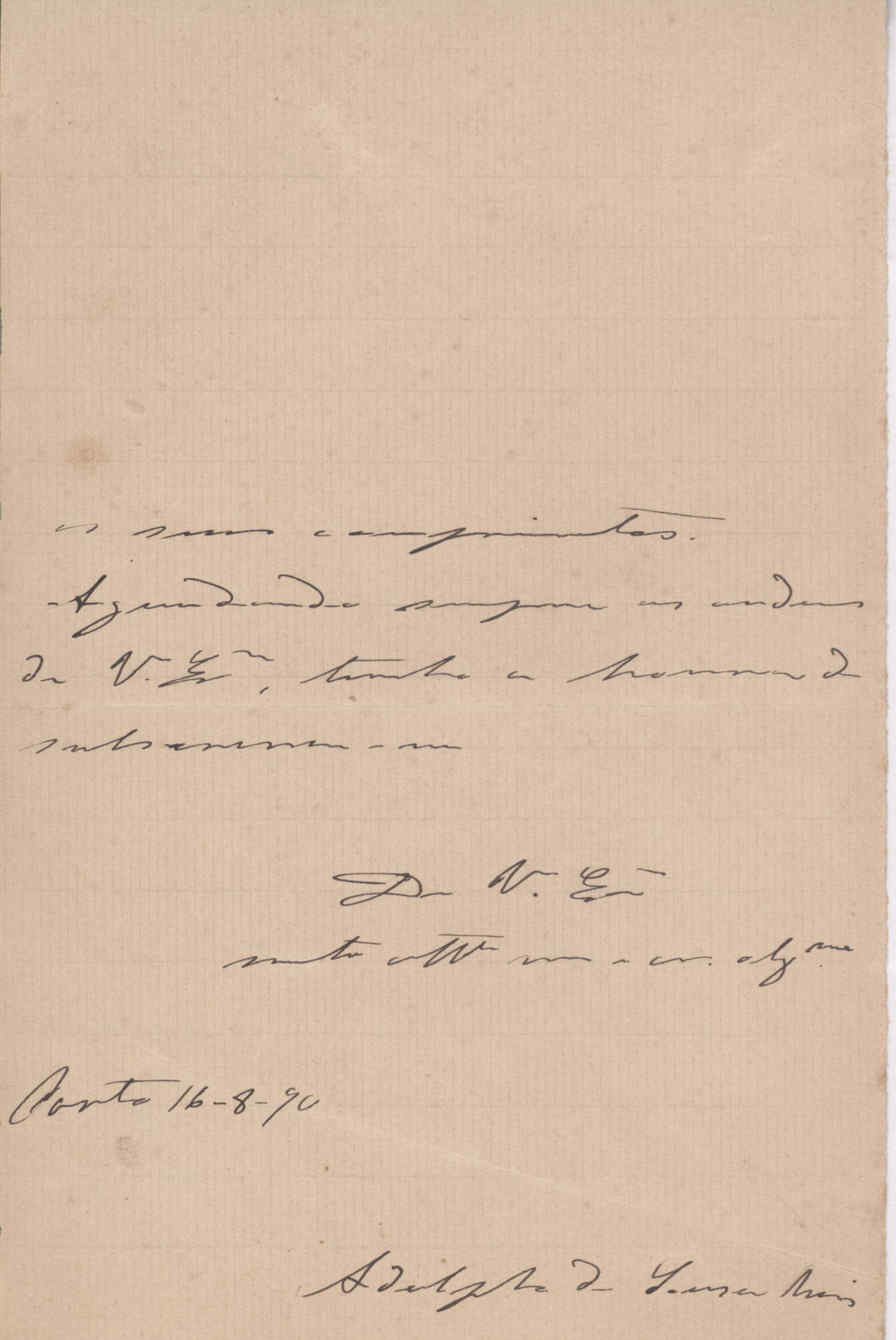 os seus comprimentos.
Aguardando sempre as ordens
de V. Exª, tenho a honra de
subscrever-me
De V. Exª
muito attº ven. e cr. obgmo
Porto 16-8-90
Adolpho de Sousa Reis